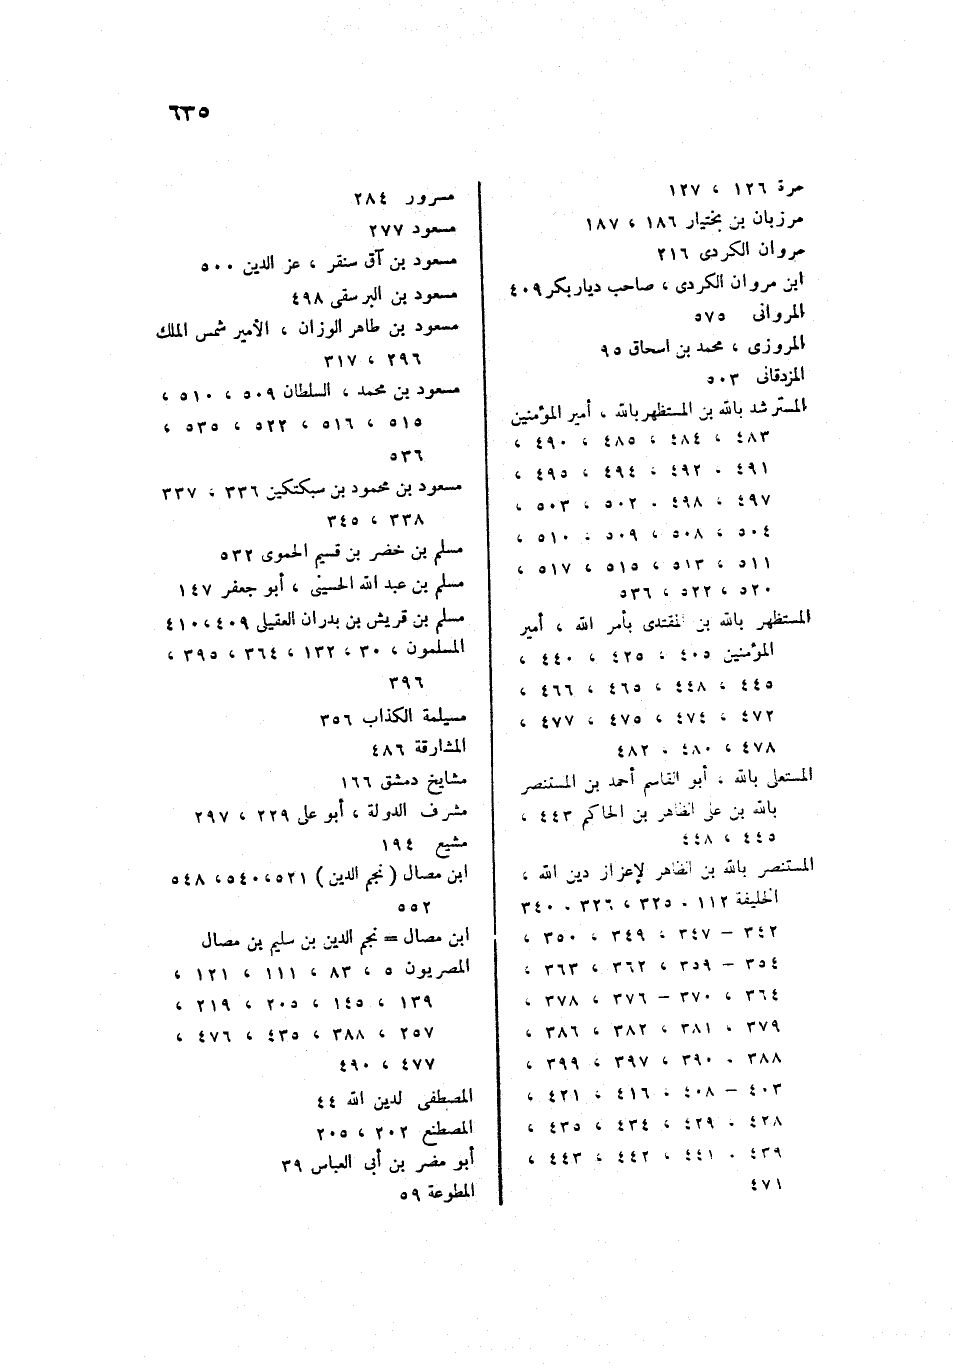 ٦٣٥
مرة ١٢٦ ، ١٢٧
مرزبان بن بختيار ١٨٦ ، ١٨٧
مروان الكردى ٢١٦
ابن مروان الكردى ، صاحب ديار بكر ٤٠٩
المروانى ٥٧٥
المروزى ، محمد بن اسحاق ٩٥
المزدقانى ٥٠٣
المسترشد بالله بن المستظهر بالله ، أمير المؤمنين
٤٨٣ ، ٤٨٤ ، ٤٨٥ ، ٤٩٠ ،
٤٩١ . ٤٩٢ ، ٤٩٤ ، ٤٩٥ ،
٤٩٧ ، ٤٩٨ . ٥٠٢ ، ٥٠٣ ،
٥٠٤ ، ٥٠٨ ، ٥٠٩ ، ٥١٠ ،
٥١١ ، ٥١٣ ، ٥١٥ ، ٥١٧ ،
٥٢٠ ، ٥٢٢ ، ٥٣٦
المستظهر بالله بن المقتدى بأمر الله ، أمير
المؤمنين ٤٠٥ ، ٤٢٥ ، ٤٤٠ ،
٤٤٥ ، ٤٤٨ ، ٤٦٥ ، ٤٦٦ ،
٤٧٢ ، ٤٧٤ ، ٤٧٥ ، ٤٧٧ ،
٤٧٨ ، ٤٨٠ . ٤٨٢
المستعلى بالله ، أبو القاسم أحمد بن المستنصر
بالله بن على الظاهر بن الحاكم ٤٤٣ ،
٤٤٥ ، ٤٤٨
المستنصر بالله بن الظاهر لإعزاز دين الله ،
الخليفة ١١٢ . ٣٢٥ ، ٣٢٦ . ٣٤٠
٣٤٢ – ٣٤٧ ، ٣٤٩ ، ٣٥٠ ،
٣٥٤ – ٣٥٩ ، ٣٦٢ ، ٣٦٣ ،
٣٦٤ ، ٣٧٠ – ٣٧٦ ، ٣٧٨ ،
٣٧٩ ، ٣٨١ ، ٣٨٢ ، ٣٨٦ ،
٣٨٨ . ٣٩٠ ، ٣٩٧ ، ٣٩٩ ،
٤٠٣ – ٤٠٨ ، ٤١٦ ، ٤٢١ ،
٤٢٨ ، ٤٢٩ ، ٤٣٤ ، ٤٣٥ ،
٤٣٩ . ٤٤١ ، ٤٤٢ ، ٤٤٣ ،
٤٧١
مسرور ٢٨٤
مسعود ٢٧٧
مسعود بن آق سنقر ، عز الدين ٥٠٠
مسعود بن البرسقى ٤٩٨
مسعود بن طاهر الوزان ، الأمير شمس الملك
٢٩٦ ، ٣١٧
مسعود بن محمد ، السلطان ٥٠٩ ، ٥١٠ ،
٥١٥ ، ٥١٦ ، ٥٢٢ ، ٥٣٥ ،
٥٣٦
مسعود بن محمود بن سبكتكين ٣٣٦ ، ٣٣٧
٣٣٨ ، ٣٤٥
مسلم بن خضر بن قسيم الحموى ٥٣٢
مسلم بن عبد الله الحسينى ، أبو جعفر ١٤٧
مسلم بن قريش بن بدران العقيلى ٤٠٩ ، ٤١٠
المسلمون ، ٣٠ ، ١٣٢ ، ٣٦٤ ، ٣٩٥ ،
٣٩٦
مسيلمة الكذاب ٣٥٦
المشارقة ٤٨٦
مشايخ دمشق ١٦٦
مشرف الدولة ، أبو على ٢٢٩ ، ٢٩٧
مشيع ١٩٤
ابن مصال ( نجم الدين ) ٥٢١ ، ٥٤٠ ، ٥٤٨
٥٥٢
ابن مصال = نجم الدين بن سليم بن مصال
المصريون ٥ ، ٨٣ ، ١١١ ، ١٢١ ،
١٣٩ ، ١٤٥ ، ٢٠٥ ، ٢١٩ ،
٢٥٧ ، ٣٨٨ ، ٤٣٥ ، ٤٧٦ ،
٤٧٧ ، ٤٩٠
المصطفى لدين الله ٤٤
المصطنع ٢٠٢ ، ٢٠٥
أبو مضر بن أبى العباس ٣٩
المطوعة ٥٩